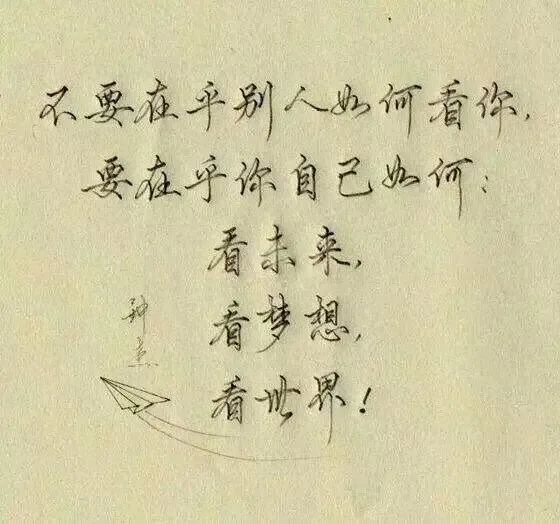 不要在乎别人如何看你,
要在乎你自己如何:
看未来,
看梦想,
看世界!
钟点